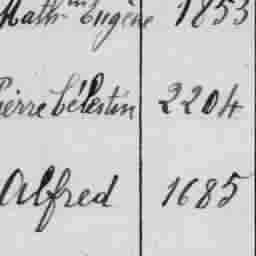 Math. Eugène 1853
Pierre Célestin 2204
Alfred 1685